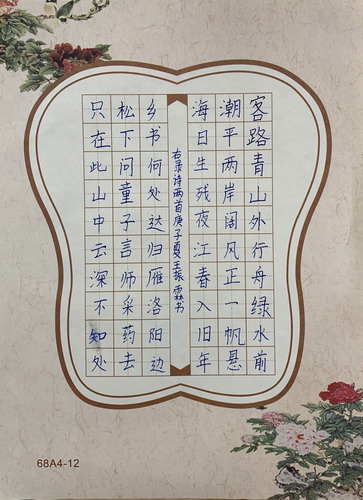 客路青山外行舟绿水前
潮平两岸阔风正一帆悬
海日生残夜江春入旧年
右录诗两首庚子夏王振霖书
乡书何处达归雁洛阳边
松下问童子言师采药去
只在此山中云深不知处
68A4-12